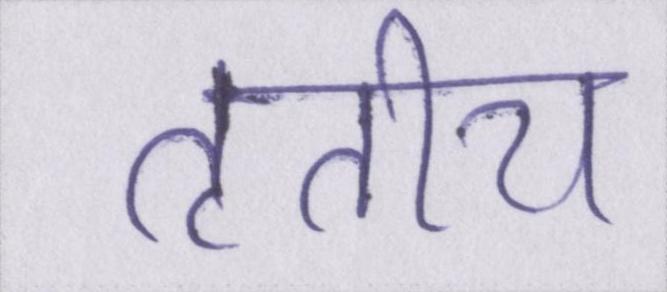 तृतीय